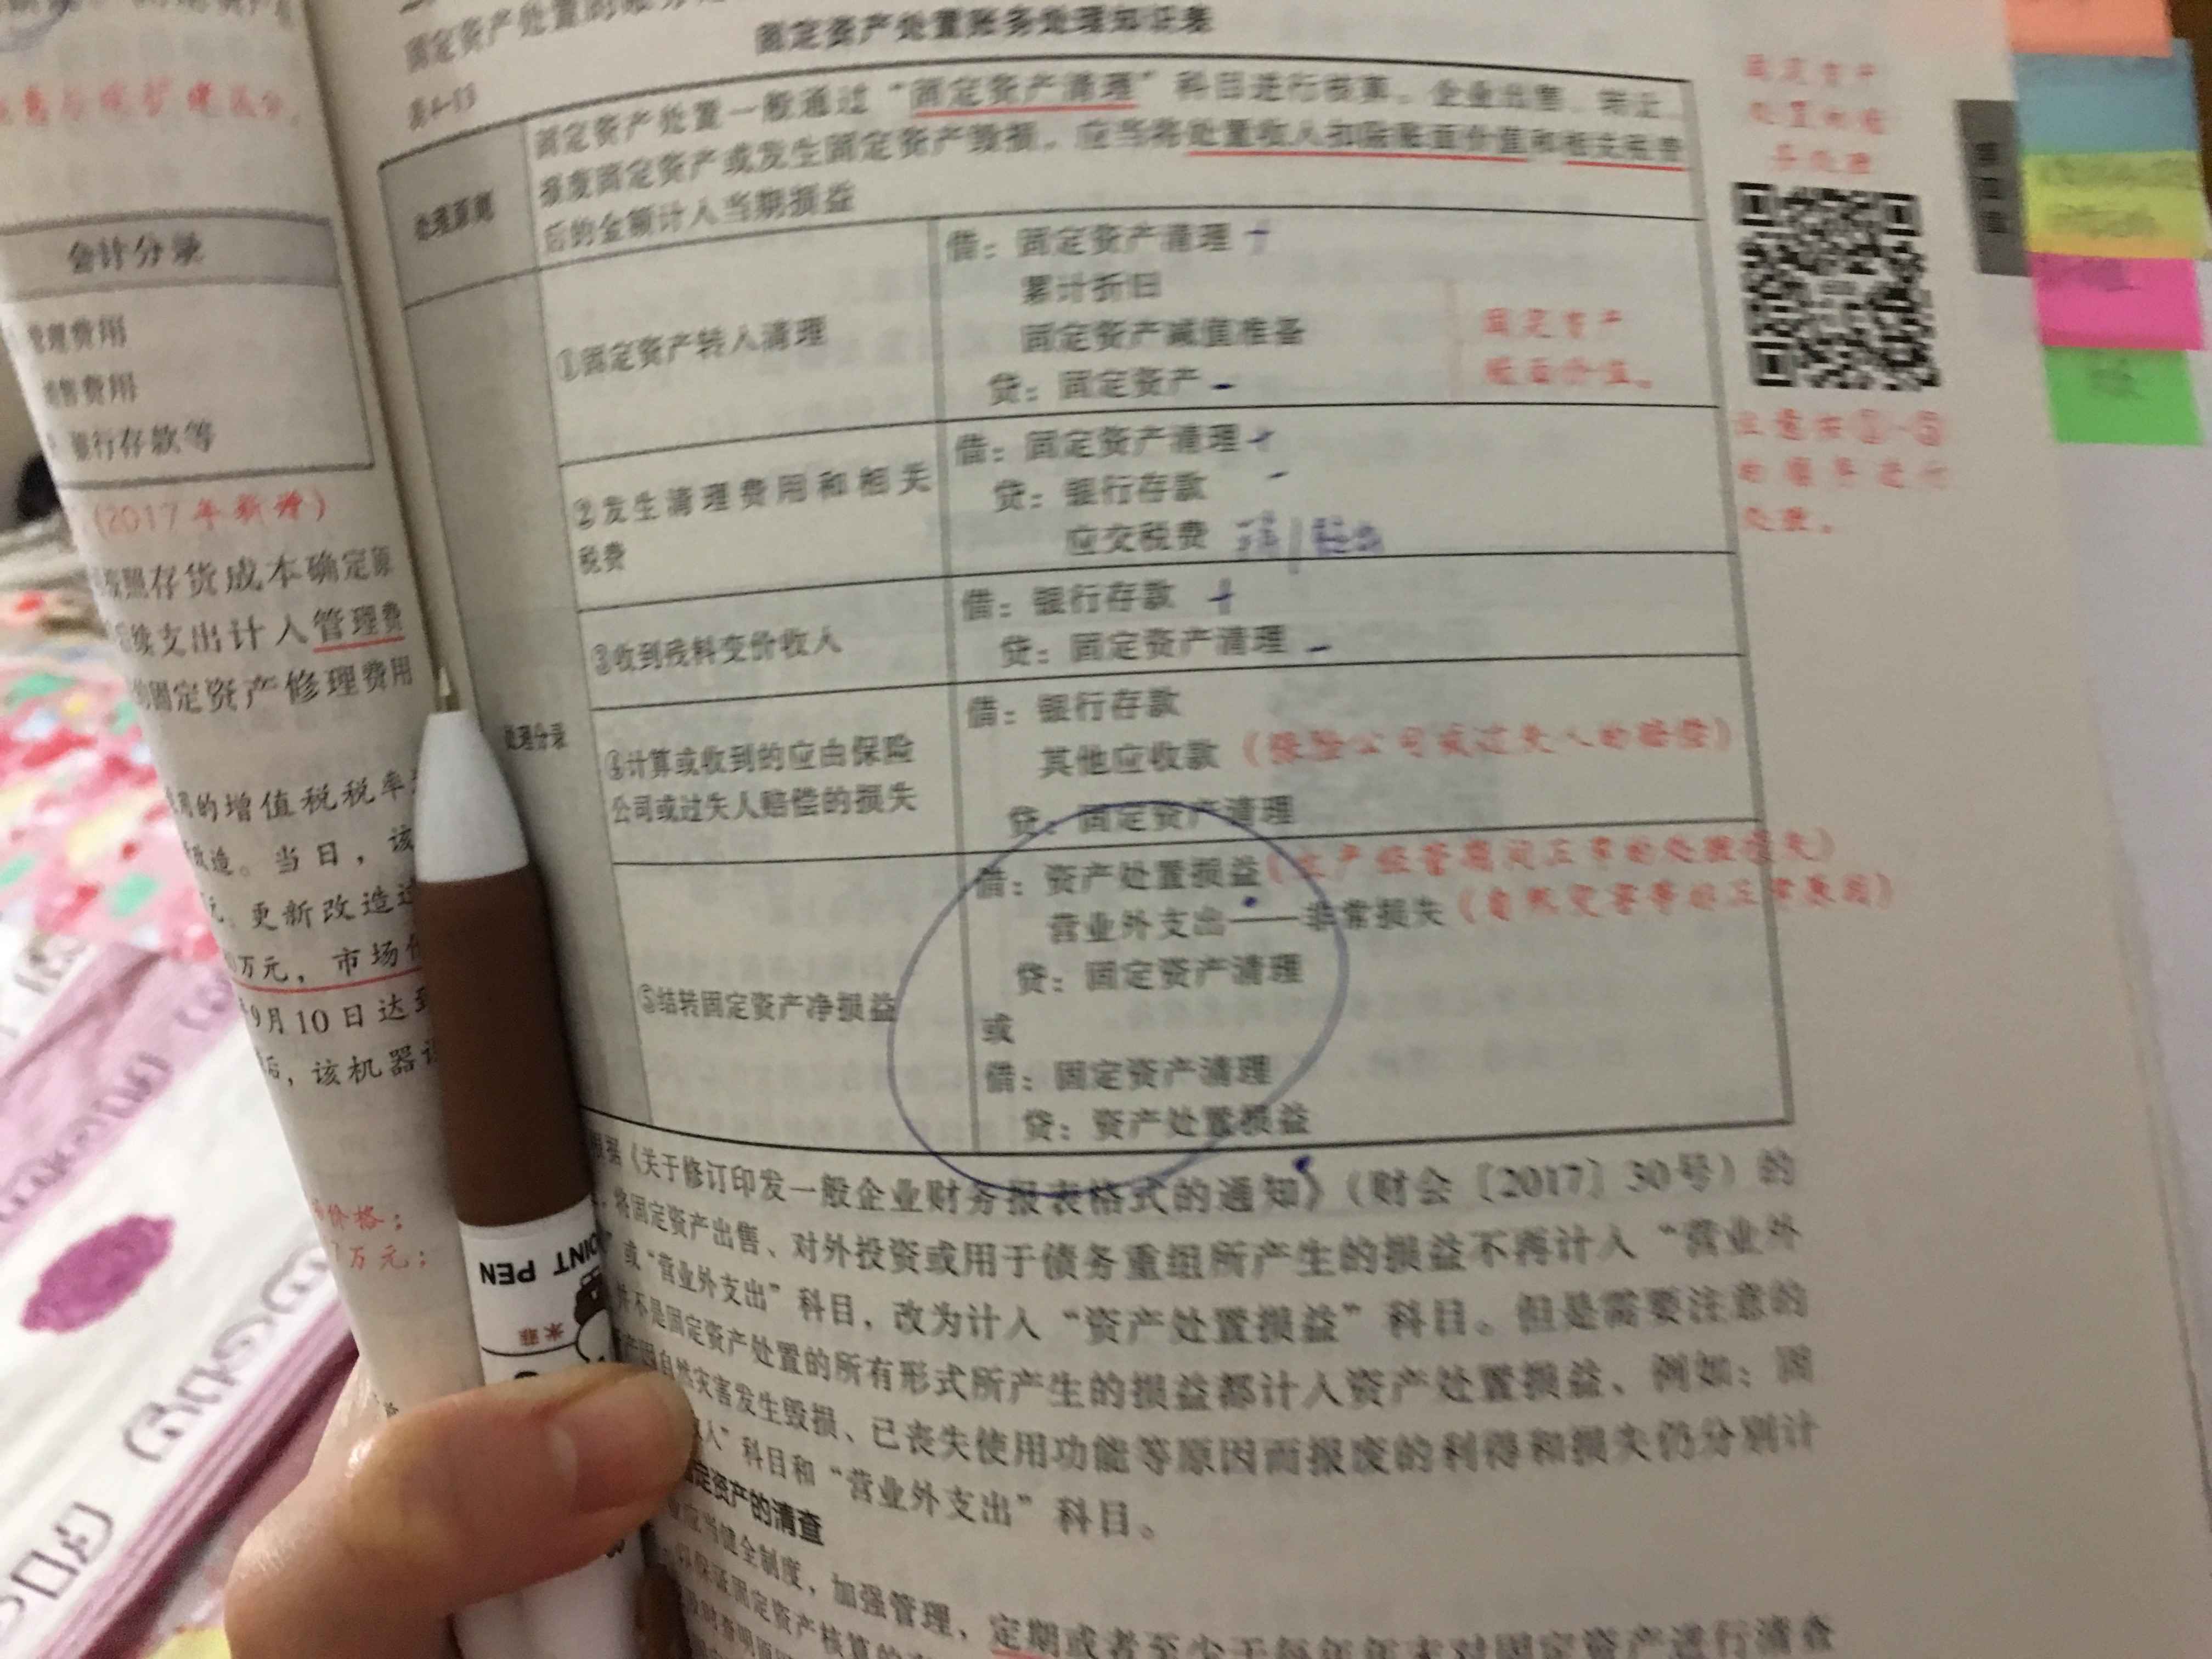 会计分录
管理费用
销售费用
银行存款等
(2017年新增)
照存货成本确定原
续支出计入管理费
的固定资产修理费用
的增值税税率
改造。当日，该
元。更新改造过
万元，市场价
9月10日达到
后，该机器设
价格；
万元；
固定资产处置账务处理知识表
表4-13
处理原则
固定资产处置一般通过“固定资产清理”科目进行核算。企业出售、转让、
报废固定资产或发生固定资产毁损，应当将处置收入扣除账面价值和相关税费
后的金额计入当期损益
处理分录
①固定资产转入清理
借：固定资产清理 +
累计折旧
固定资产减值准备
贷：固定资产 -
固定资产
账面价值。
②发生清理费用和相关
税费
借：固定资产清理 +
贷：银行存款 -
应交税费
③收到残料变价收入
借：银行存款 +
贷：固定资产清理 -
④计算或收到的应由保险
公司或过失人赔偿的损失
借：银行存款
其他应收款（保险公司或过失人的赔偿）
贷：固定资产清理
⑤结转固定资产净损益
借：资产处置损益（生产经营期间正常的处理损失）
营业外支出——非常损失（自然灾害等非正常原因）
贷：固定资产清理
或
借：固定资产清理
贷：资产处置损益
固定资产
处置的账
务处理
注意按①-⑤
的顺序进行
处理。
根据《关于修订印发一般企业财务报表格式的通知》（财会〔2017〕30号）的
将固定资产出售、对外投资或用于债务重组所产生的损益不再计入“营业外
或“营业外支出”科目，改为计入“资产处置损益”科目。但是需要注意的
并不是固定资产处置的所有形式所产生的损益都计入资产处置损益、例如：固
自然灾害发生毁损、已丧失使用功能等原因而报废的利得和损失仍分别计
入”科目和“营业外支出”科目。
固定资产的清查
应当健全制度，加强管理，定期或者至少于每年年末对固定资产进行清查
保证固定资产核算的
POINT PEN
米菲